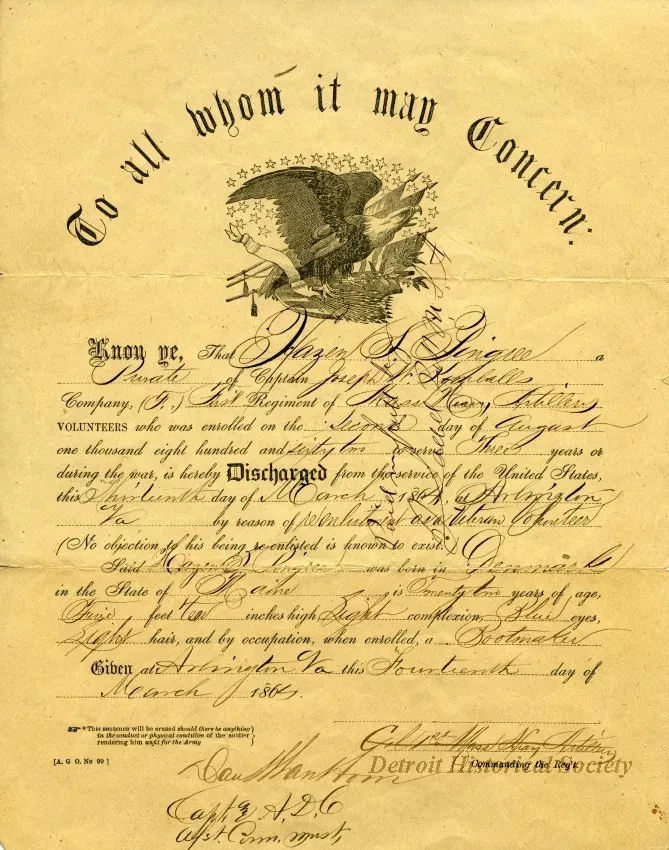 To all whom it may Concern:
Know ye, That Hazen S. Pingree a
Private of Captain Joseph W. Kimballs
Company, (F.) First Regiment of Mass Heavy Artillery
VOLUNTEERS who was enrolled on the Second day of August
one thousand eight hundred and sixty two to serve Three years or
during the war, is hereby Discharged from the service of the United States,
this Thirteenth day of March, 1864, at Arlington
Va by reason of reenlistment as a Veteran Volunteer
(No objection to his being re-enlisted is known to exist.
Said Hazen S. Pingree was born in Denmark
in the State of Maine is Twenty two years of age,
Five feet ten inches high, Light complexion, Blue eyes,
Light hair, and by occupation, when enrolled, a Bootmaker
Given at Arlington Va this Fourteenth day of
March 1864.
*This sentence will be erased should there be anything
in the conduct or physical condition of the soldier
rendering him unfit for the Army
[A. G. O. No 99]
Col 1st Mass Heavy Artillery
Commanding the Reg't.
Detroit Historical Society
Capt & A, D, C
Asst. Com. Must,